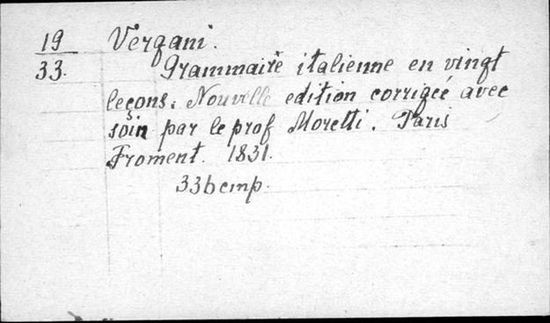 19 Vergani.
33. Grammaire italienne en vingt
leçons. Nouvelle edition corrigée avec
soin par le prof Moretti. Paris
Froment. 1831.
33 bemp.